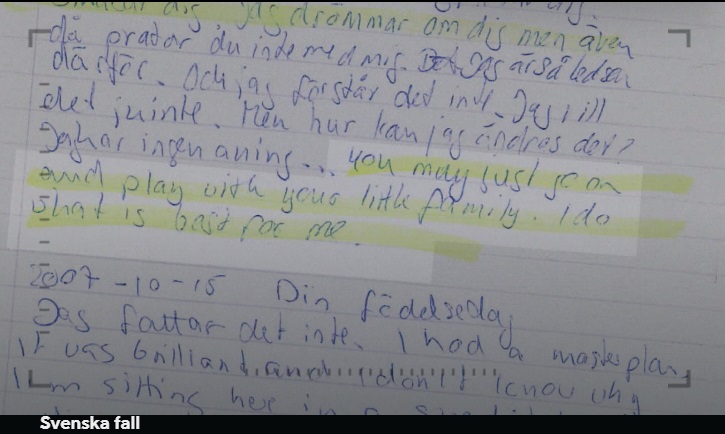 jag drömmar om dig men även
då pratar du inte med mig. Det Jag är så ledsen
därför. Och jag förstår det inte. Jag vill
det ju inte. Men hur kan jag ändras det?
Jag har ingen aning... you may just go on
and play with your little family. I do
what is best for me.
2007-10-15 Din födelsedag
Jag fattar det inte. I had a masterplan,
it was brilliant and I don't know why
I'm sitting here in a
Svenska fall